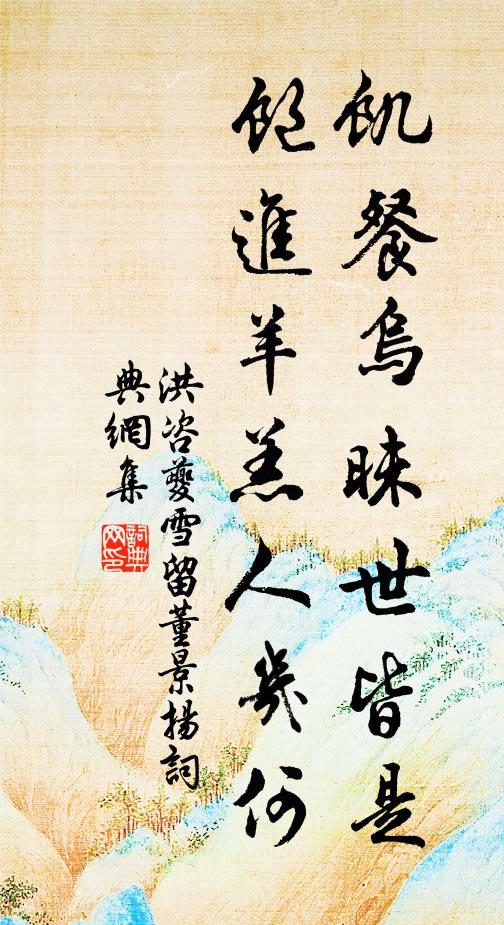 飢餐烏昧世皆是
飽進羊羔人幾何
洪咨夔雪留董景揚詞
典網集
詞典